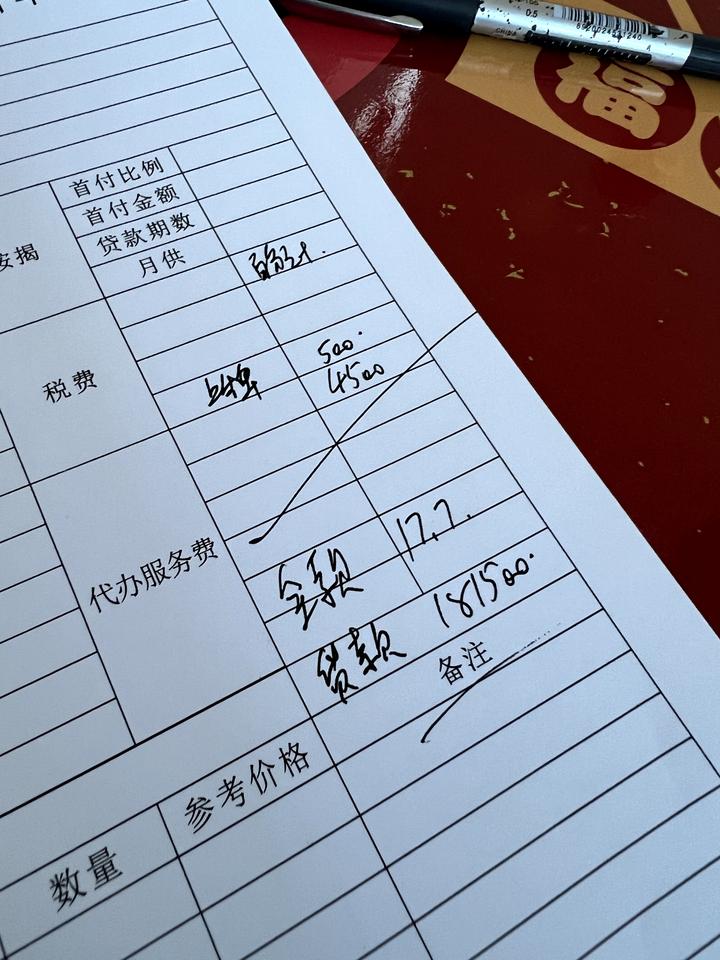 0.5
CHINA
福
首付比例
首付金额
贷款期数
按揭
月供
500.
上牌
4500
税费
代办服务费
全款 17.7.
贷款 181500.
备注
参考价格
数量